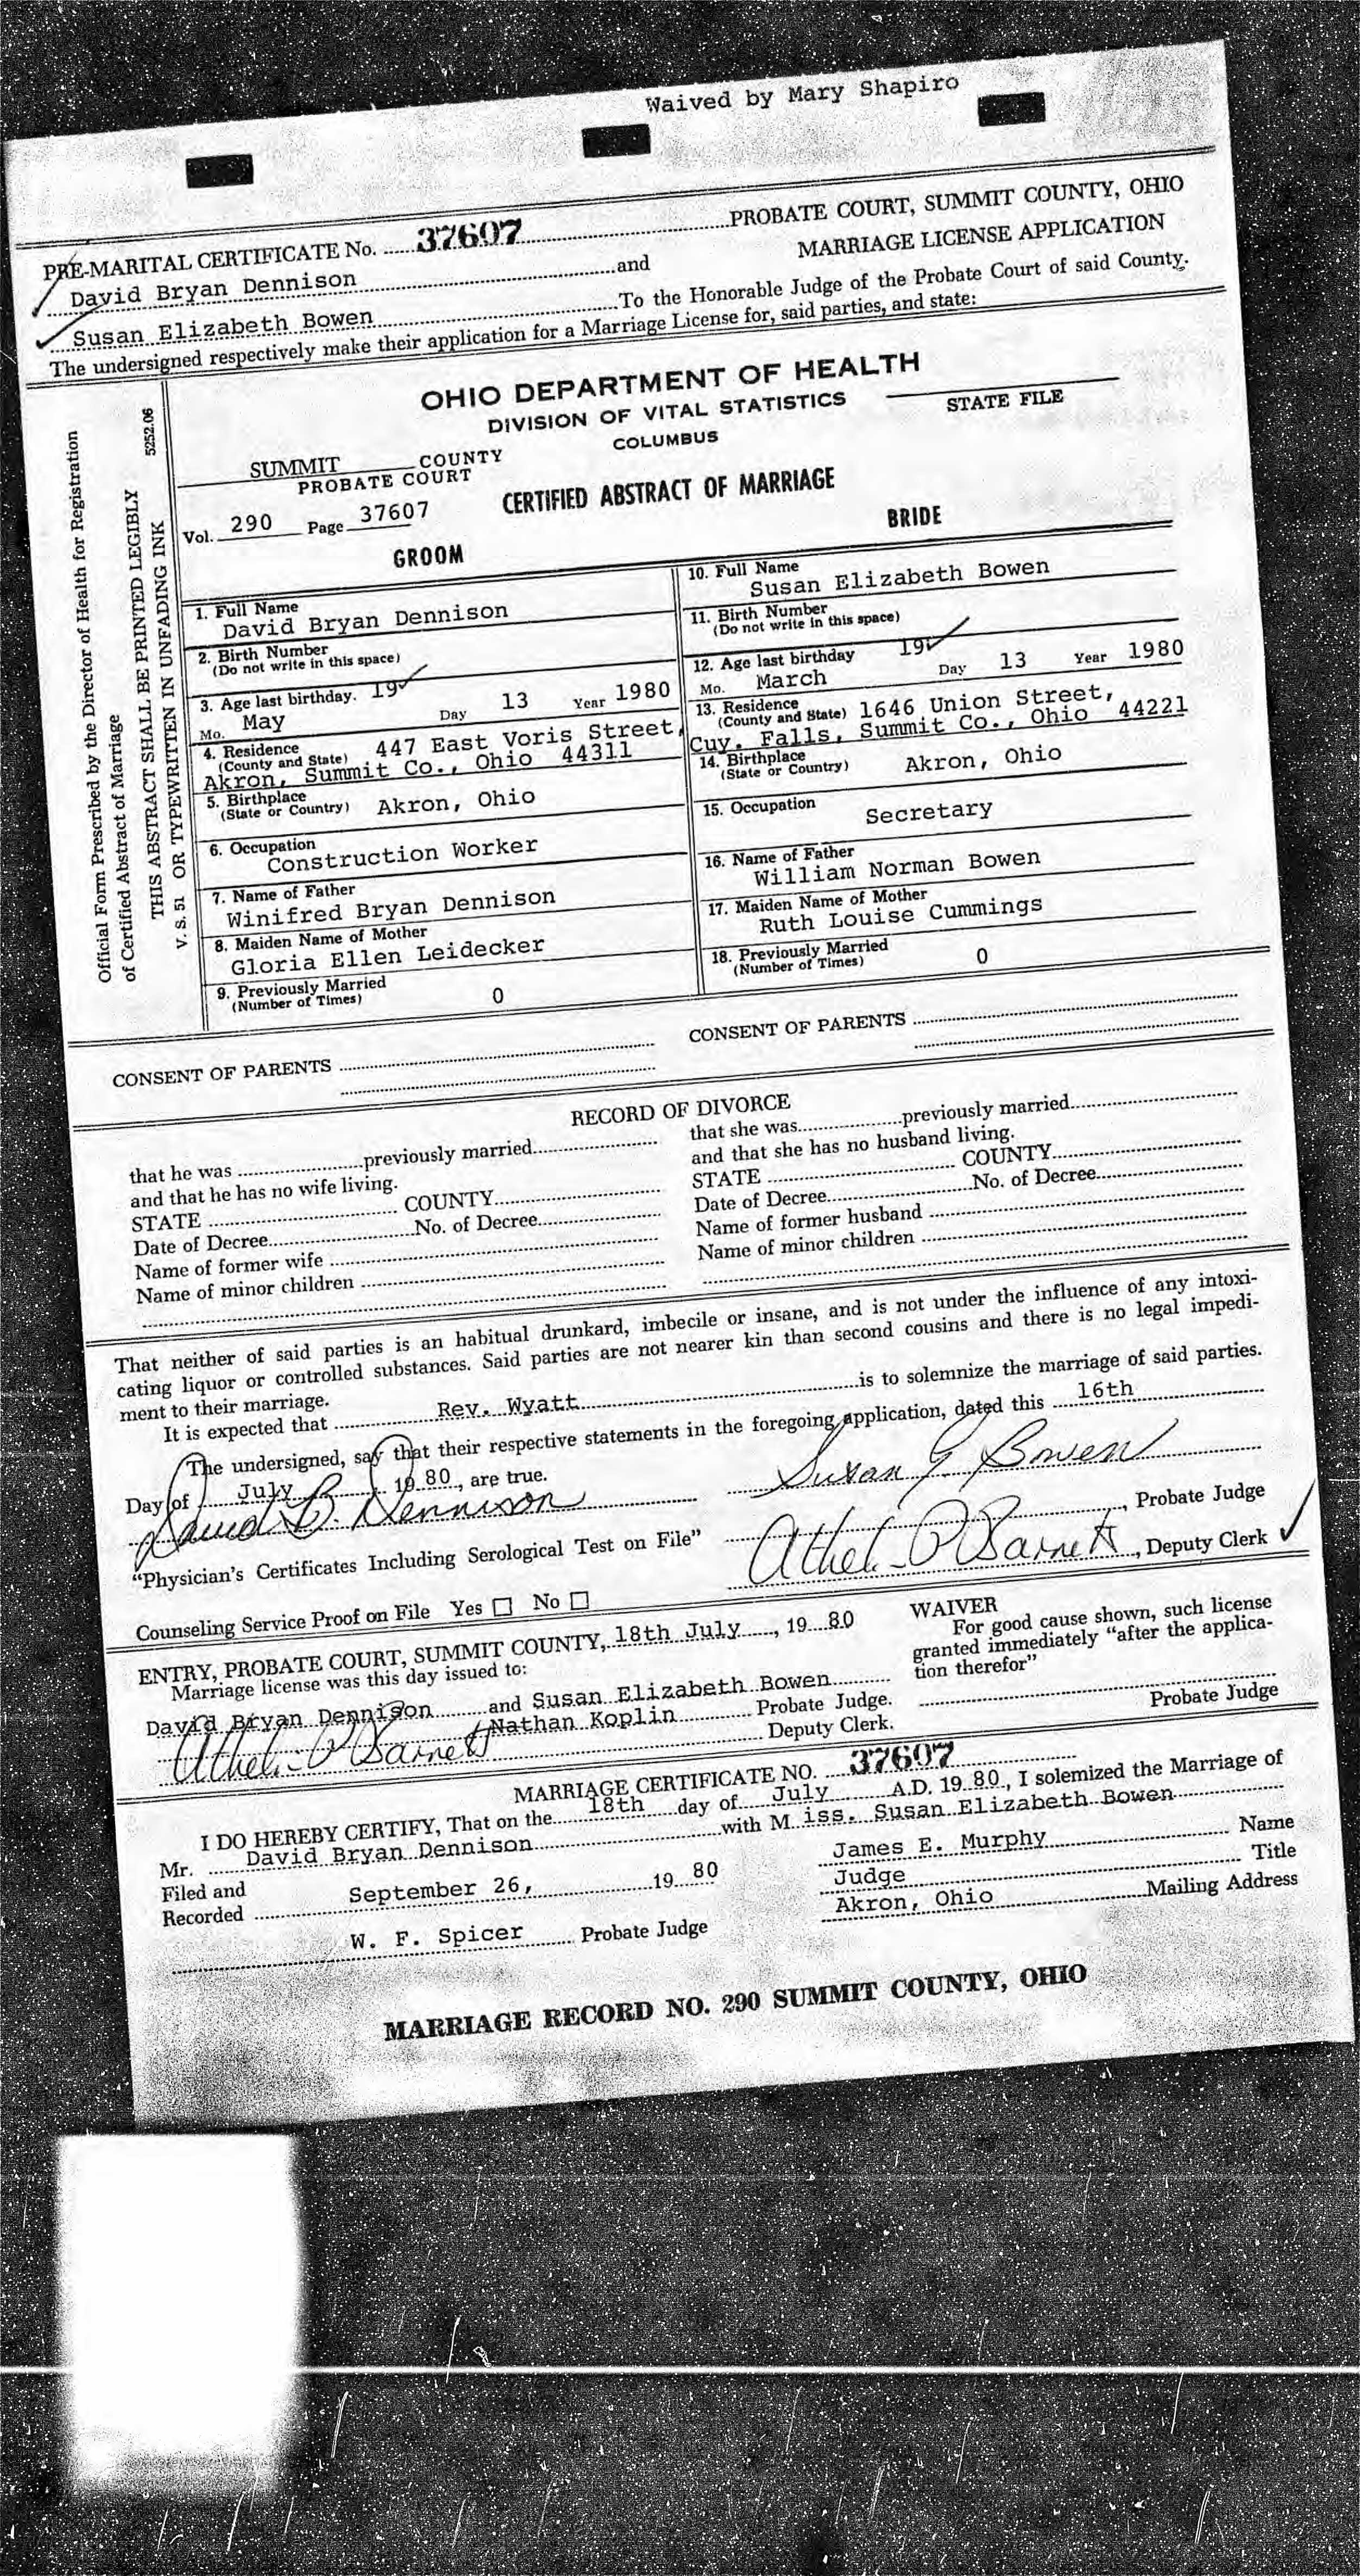 Waived by Mary Shapiro
PRE-MARITAL CERTIFICATE No. 37607 PROBATE COURT, SUMMIT COUNTY, OHIO
MARRIAGE LICENSE APPLICATION
David Bryan Dennison and
Susan Elizabeth Bowen To the Honorable Judge of the Probate Court of said County.
The undersigned respectively make their application for a Marriage License for, said parties, and state:
Official Form Prescribed by the Director of Health for Registration
of Certified Abstract of Marriage 5252.06
THIS ABSTRACT SHALL BE PRINTED LEGIBLY
V. S. 51 OR TYPEWRITTEN IN UNFADING INK
OHIO DEPARTMENT OF HEALTH
DIVISION OF VITAL STATISTICS STATE FILE
COLUMBUS
SUMMIT COUNTY
PROBATE COURT
CERTIFIED ABSTRACT OF MARRIAGE
Vol. 290 Page 37607
GROOM
BRIDE
1. Full Name
David Bryan Dennison
2. Birth Number
(Do not write in this space)
3. Age last birthday. 19
Mo. May Day 13 Year 1980
4. Residence
(County and State) 447 East Voris Street,
Akron, Summit Co., Ohio 44311
5. Birthplace
(State or Country) Akron, Ohio
6. Occupation
Construction Worker
7. Name of Father
Winifred Bryan Dennison
8. Maiden Name of Mother
Gloria Ellen Leidecker
9. Previously Married
(Number of Times) 0
10. Full Name
Susan Elizabeth Bowen
11. Birth Number
(Do not write in this space)
12. Age last birthday 19
Mo. March Day 13 Year 1980
13. Residence
(County and State) 1646 Union Street,
Cuy. Falls, Summit Co., Ohio 44221
14. Birthplace
(State or Country) Akron, Ohio
15. Occupation
Secretary
16. Name of Father
William Norman Bowen
17. Maiden Name of Mother
Ruth Louise Cummings
18. Previously Married
(Number of Times) 0
CONSENT OF PARENTS
CONSENT OF PARENTS
RECORD OF DIVORCE
that he was previously married
and that he has no wife living.
STATE COUNTY
Date of Decree No. of Decree
Name of former wife
Name of minor children
that she was previously married
and that she has no husband living.
STATE COUNTY
Date of Decree No. of Decree
Name of former husband
Name of minor children
That neither of said parties is an habitual drunkard, imbecile or insane, and is not under the influence of any intoxi-
cating liquor or controlled substances. Said parties are not nearer kin than second cousins and there is no legal impedi-
ment to their marriage.
It is expected that Rev. Wyatt is to solemnize the marriage of said parties.
The undersigned, say that their respective statements in the foregoing application, dated this 16th
Day of July 1980, are true.
David B. Dennison
Susan E Bowen
Probate Judge
"Physician's Certificates Including Serological Test on File"
Athel P Barnett, Deputy Clerk
Counseling Service Proof on File Yes No
ENTRY, PROBATE COURT, SUMMIT COUNTY, 18th July, 1980
Marriage license was this day issued to:
David Bryan Dennison and Susan Elizabeth Bowen
Nathan Koplin Probate Judge.
Athel P Barnett Deputy Clerk.
WAIVER
For good cause shown, such license
granted immediately "after the applica-
tion therefor"
Probate Judge
MARRIAGE CERTIFICATE NO. 37607
I DO HEREBY CERTIFY, That on the 18th day of July A.D. 1980, I solemized the Marriage of
Mr. David Bryan Dennison with Miss. Susan Elizabeth Bowen
Filed and
Recorded September 26, 1980
W. F. Spicer Probate Judge
James E. Murphy Name
Judge Title
Akron, Ohio Mailing Address
MARRIAGE RECORD NO. 290 SUMMIT COUNTY, OHIO